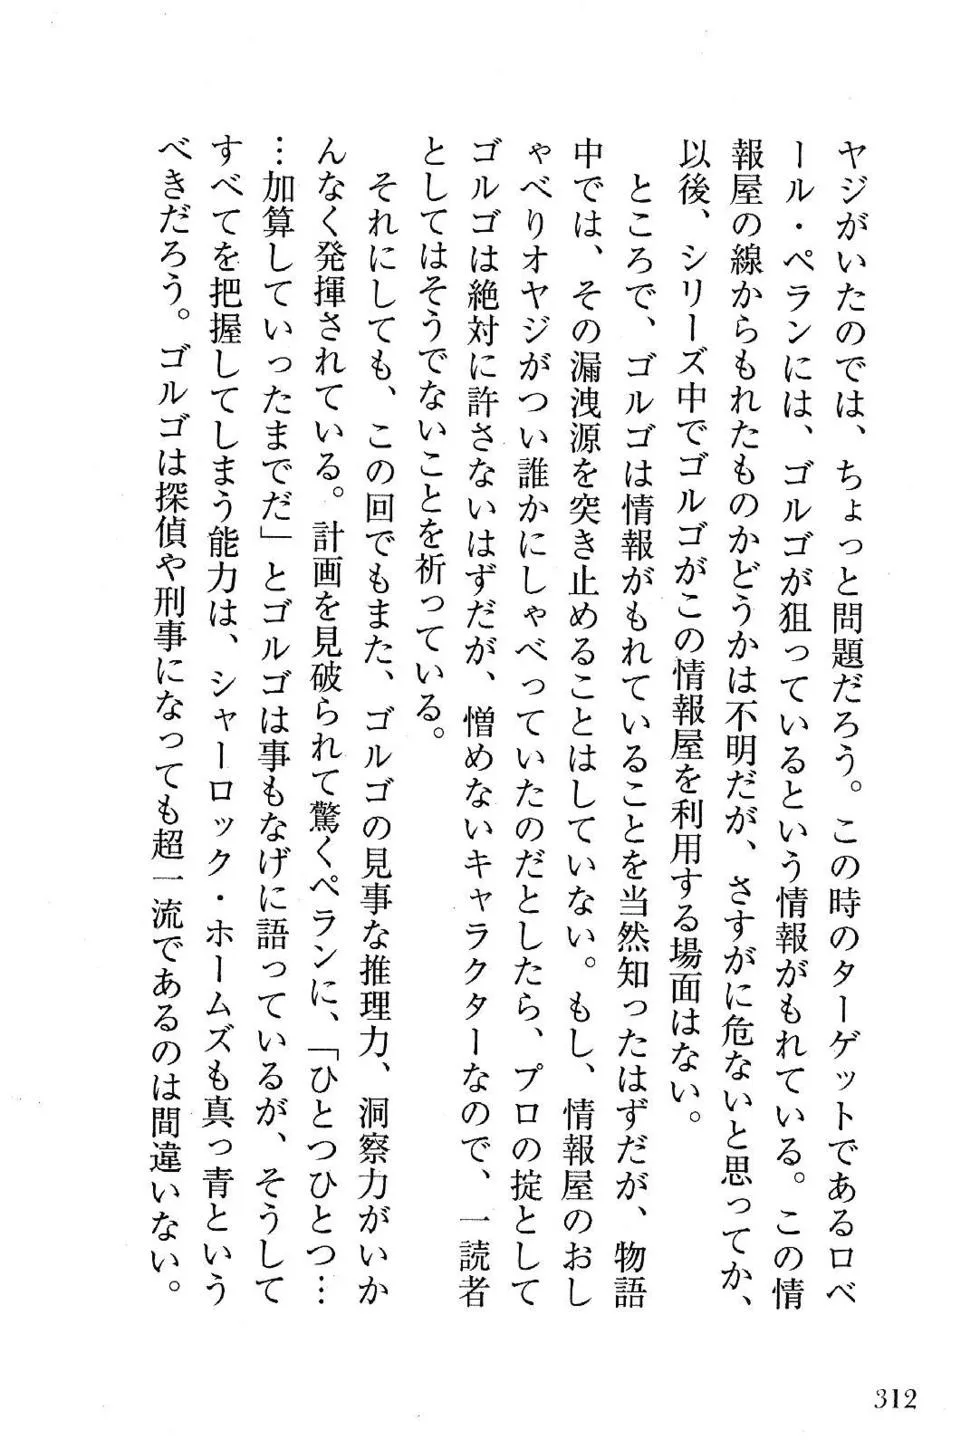 ヤジがいたのでは、ちょっと問題だろう。この時のターゲットであるロベ
ール・ペランには、ゴルゴが狙っているという情報がもれている。この情
報屋の線からもれたものかどうかは不明だが、さすがに危ないと思ってか、
以後、シリーズ中でゴルゴがこの情報屋を利用する場面はない。
ところで、ゴルゴは情報がもれていることを当然知ったはずだが、物語
中では、その漏洩源を突き止めることはしていない。もし、情報屋のおし
ゃべりオヤジがつい誰かにしゃべっていたのだとしたら、プロの掟として
ゴルゴは絶対に許さないはずだが、憎めないキャラクターなので、一読者
としてはそうでないことを祈っている。
それにしても、この回でもまた、ゴルゴの見事な推理力、洞察力がいか
んなく発揮されている。計画を見破られて驚くペランに、「ひとつひとつ…
…加算していったまでだ」とゴルゴは事もなげに語っているが、そうして
すべてを把握してしまう能力は、シャーロック・ホームズも真っ青という
べきだろう。ゴルゴは探偵や刑事になっても超一流であるのは間違いない。
312